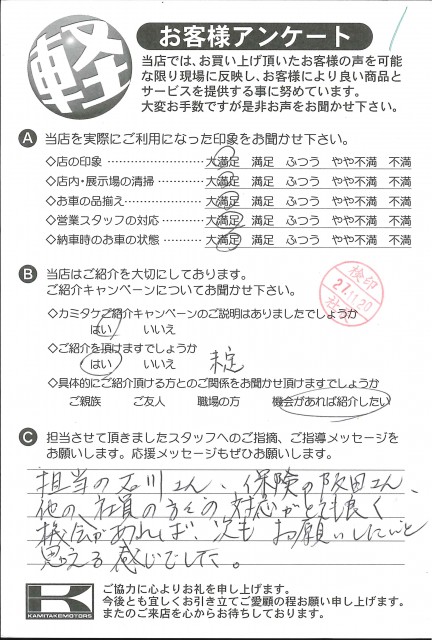 軽
お客様アンケート
当店では、お買い上げ頂いたお客様の声を可能
な限り現場に反映し、お客様により良い商品と
サービスを提供する事に努めています。
大変お手数ですが是非お声をお聞かせ下さい。
A 当店を実際にご利用になった印象をお聞かせ下さい。
◇店の印象 大満足 満足 ふつう やや不満 不満
◇店内・展示場の清掃 大満足 満足 ふつう やや不満 不満
◇お車の品揃え 大満足 満足 ふつう やや不満 不満
◇営業スタッフの対応 大満足 満足 ふつう やや不満 不満
◇納車時のお車の状態 大満足 満足 ふつう やや不満 不満
B 当店はご紹介を大切にしております。
ご紹介キャンペーンについてお聞かせ下さい。
検印
27.11.20
◇カミタケご紹介キャンペーンのご説明はありましたでしょうか
はい いいえ
◇ご紹介を頂けますでしょうか
はい いいえ 未定
◇具体的にご紹介頂ける方とのご関係をお聞かせ頂けますでしょうか
ご親族 ご友人 職場の方 機会があれば紹介したい
C 担当させて頂きましたスタッフへのご指摘、ご指導メッセージを
お願いします。応援メッセージもぜひお願いします。
担当の石川さん、保険の阪田さん、
他の社員の方々の対応がとても良く
機会があれば、次もお願いしたいと
思える感じでした。
K
KAMITAKEMOTORS
ご協力に心よりお礼を申し上げます。
今後とも宜しくお引き立てご愛顧の程お願い申し上げます。
またのご来店を心からお待ちしております。